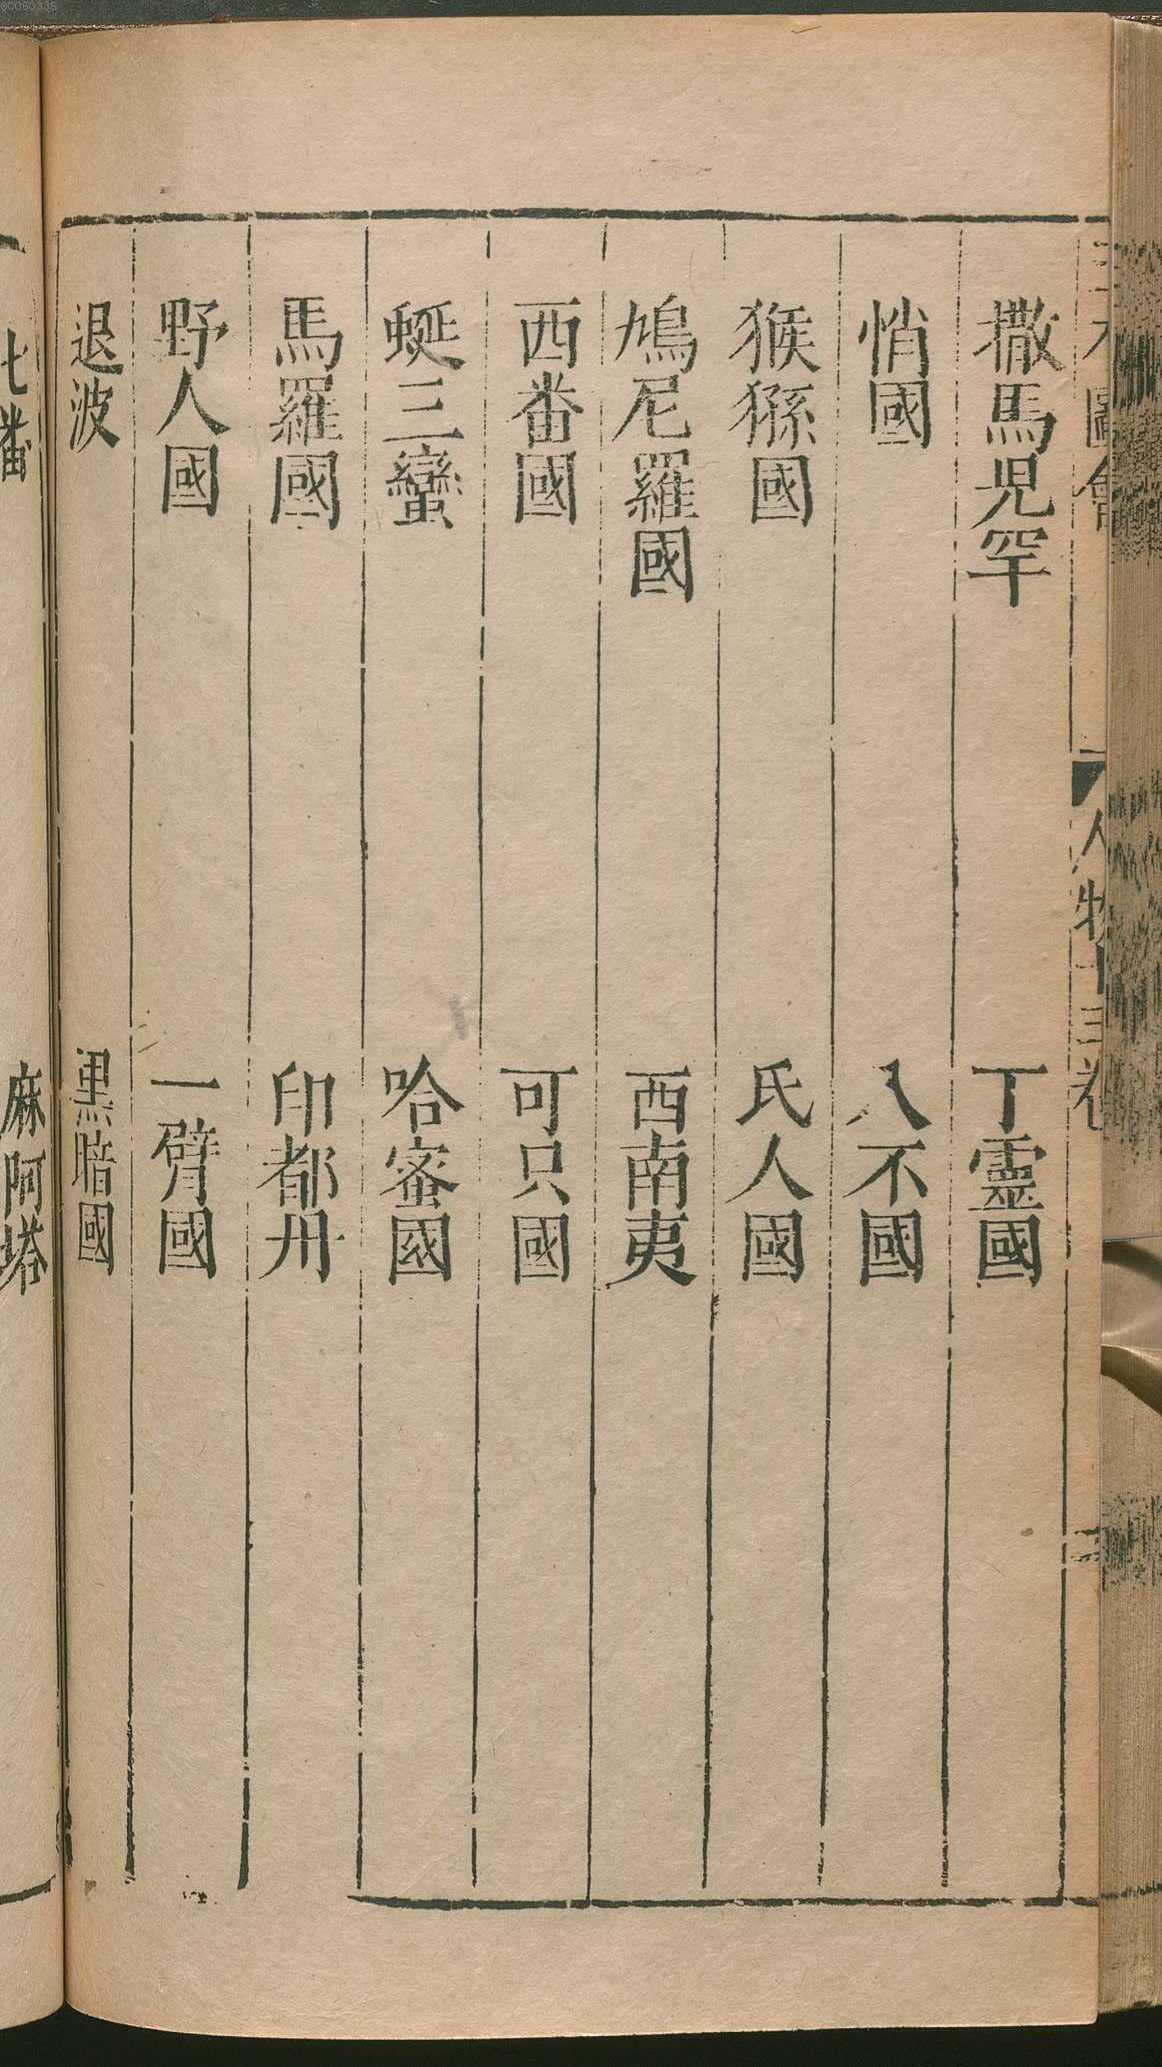 三才圖會 人物十三卷
撒馬児罕 丁靈國
悄國 入不國
猴猻國 氐人國
鳩尼羅國 西南夷
西番國 可只國
蜒三蠻 哈蜜國
馬羅國 印都丹
野人國 一臂國
退波 黒暗國
麻阿塔
00060336